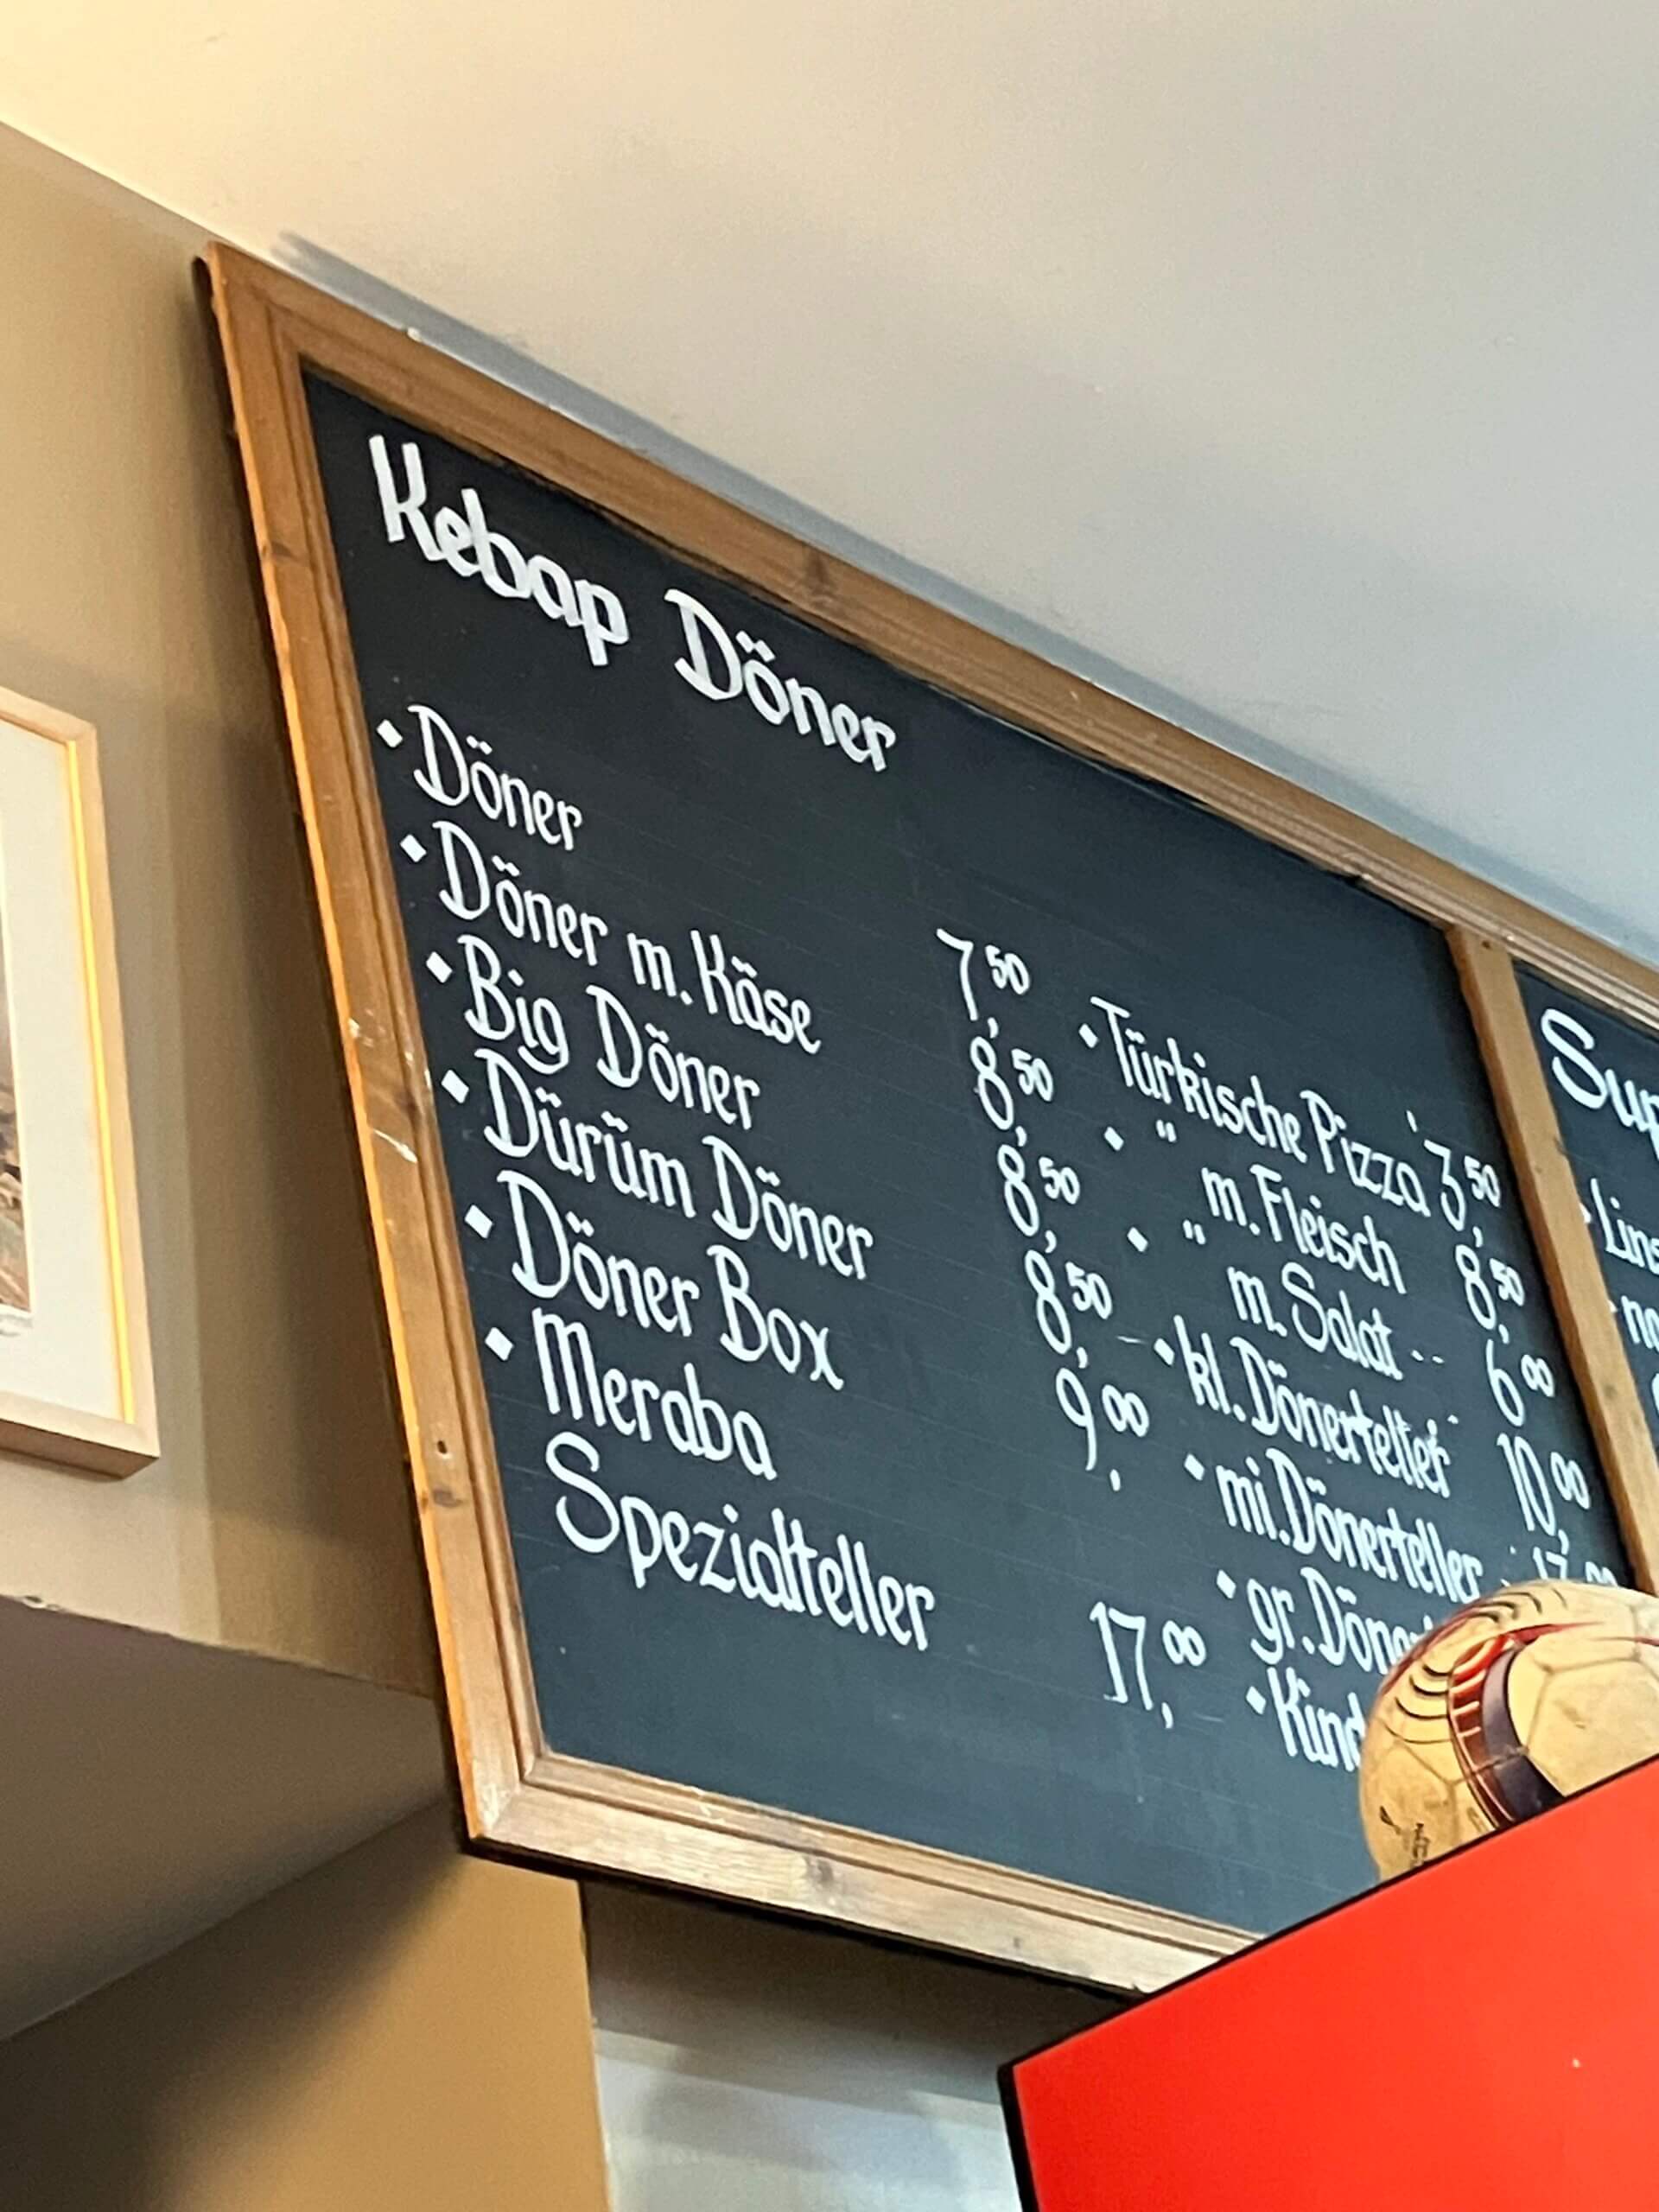 Kebap Döner
• Döner 7,50
• Döner m. Käse 8,50
• Big Döner 8,50
• Dürüm Döner 8,50
• Döner Box 9,00
• Meraba
Spezialteller 17,00
• Türkische Pizza 3,50
• " m. Fleisch 8,50
• " m. Salat -- 6,00
• kl. Dönerteller 10,00
• mi. Dönerteller
• gr.